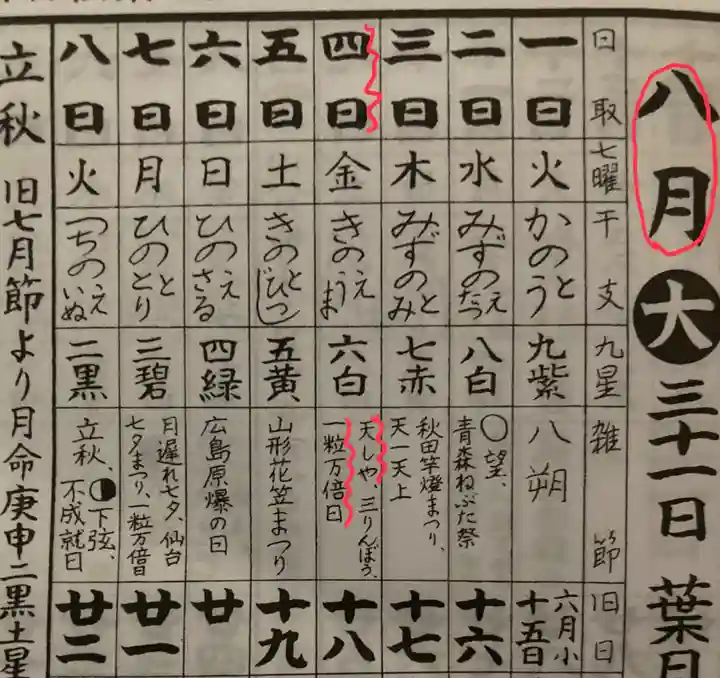 八月大三十一日 葉月
日取
七曜
干支
九星
雑節
旧日
一日
火
かのとう
九紫
八朔
六月小
十五日
二日
水
みずのえたつ
八白
○望、
青森ねぶた祭
十六
三日
木
みずのとみ
七赤
秋田竿燈まつり、
天一天上
十七
四日
金
きのえうま
六白
天しや、三りんぼう、
一粒万倍日
十八
五日
土
きのとひつじ
五黄
山形花笠まつり
十九
六日
日
ひのえさる
四緑
広島原爆の日
廿
七日
月
ひのととり
三碧
月遅れ七夕、仙台
七夕まつり、一粒万倍日
廿一
八日
火
つちのえいぬ
二黒
立秋、◐下弦、
不成就日
廿二
立秋 旧七月節より月命庚申二黒土星